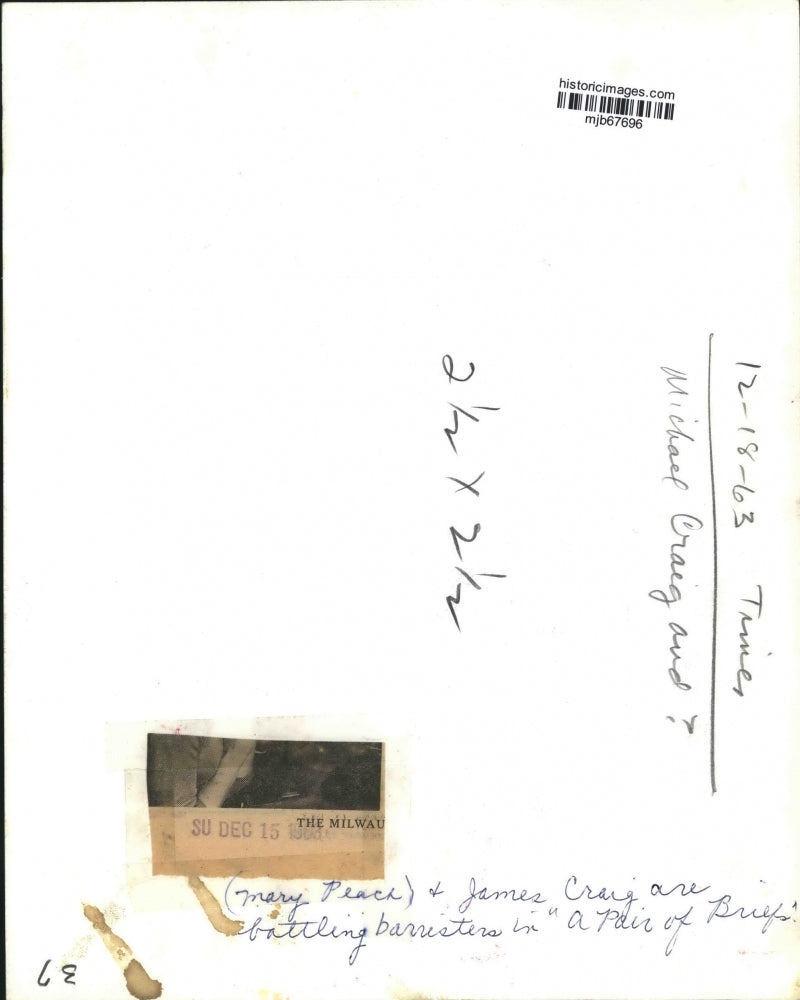 historicimages.com
mjb67696
12-18-63 Times
Michael Craig and ?
2 1/2 X 2 1/2
SU DEC 15 1963
THE MILWAU
(Mary Peach) & James Craig are
battling barristers in "A Pair of Briefs"
37